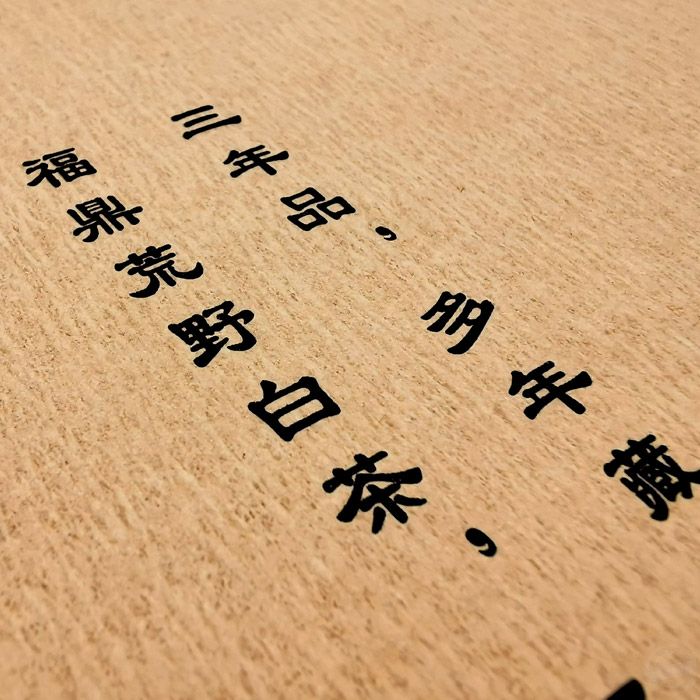 三年品，多年藏
福鼎荒野白茶，